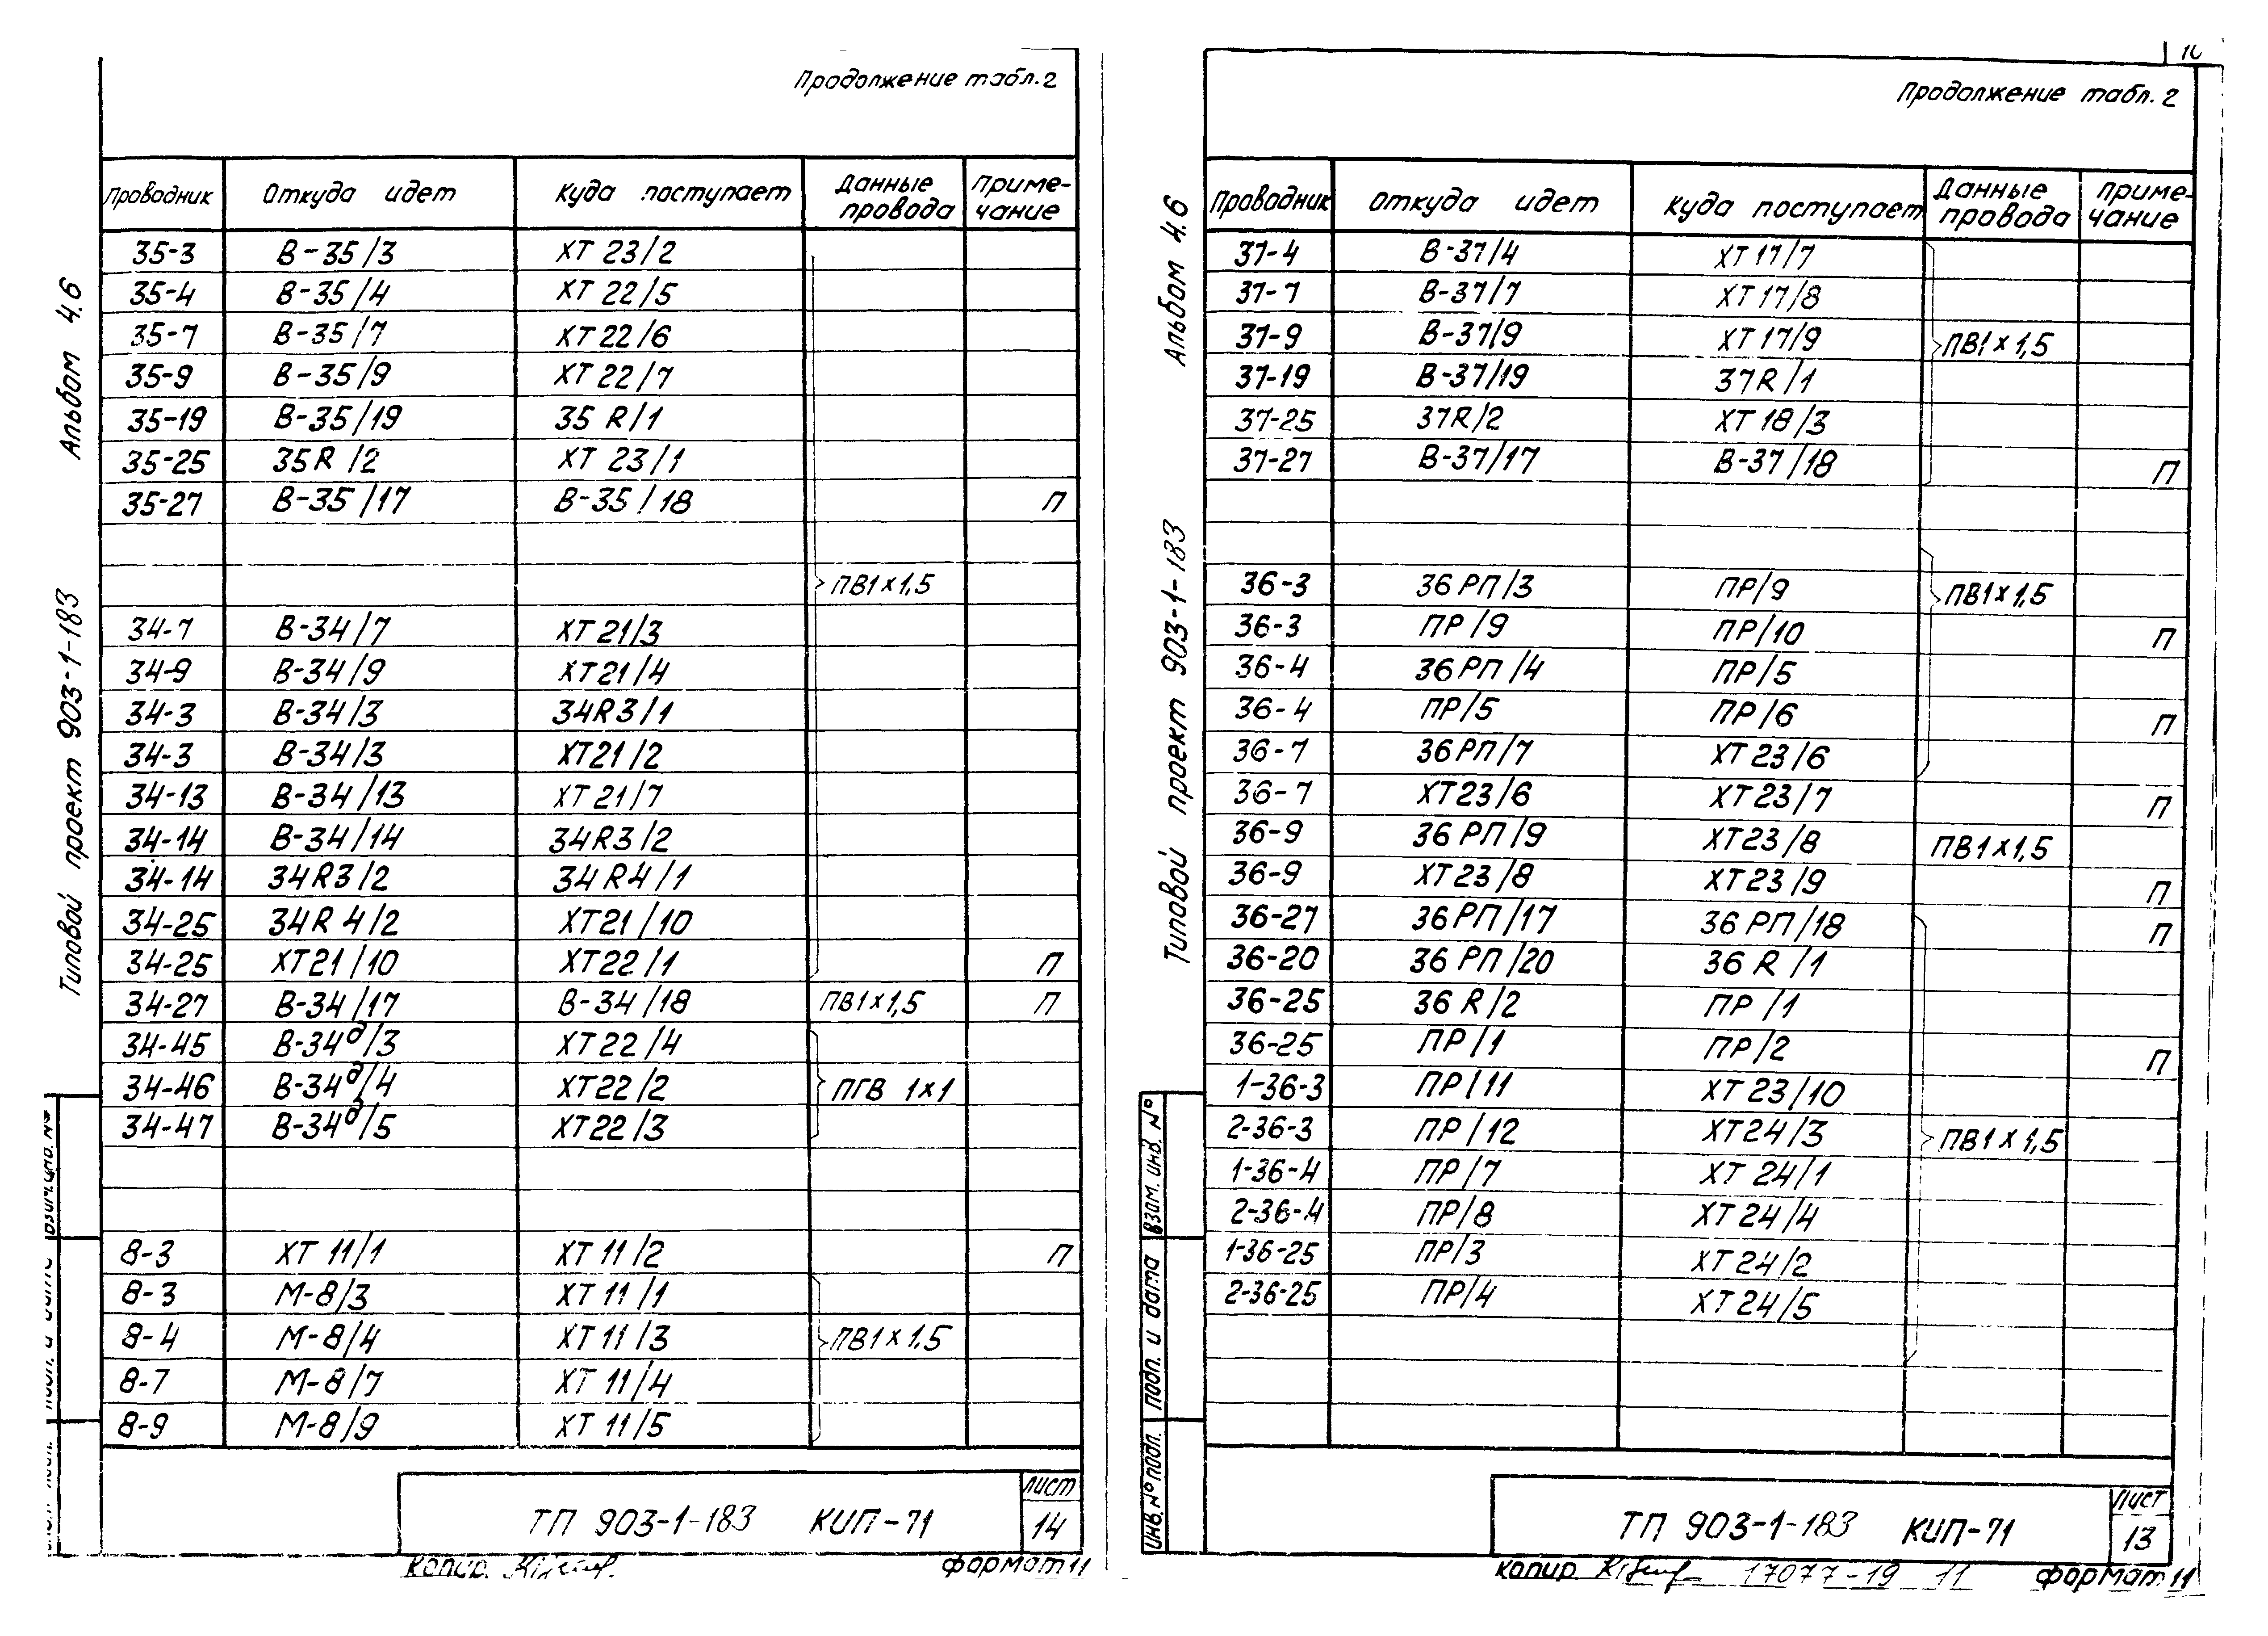 Продолжение табл.2
Проводник Откуда идет Куда поступает Данные провода Приме-чание
35-3 В-35/3 ХТ 23/2
35-4 В-35/4 ХТ 22/5
35-7 В-35/7 ХТ 22/6
35-9 В-35/9 ХТ 22/7
35-19 В-35/19 35 R/1
35-25 35R /2 ХТ 23/1
35-27 В-35/17 В-35/18 П
ПВ1х1,5
34-7 В-34/7 ХТ21/3
34-9 В-34/9 ХТ21/4
34-3 В-34/3 34R3/1
34-3 В-34/3 ХТ21/2
34-13 В-34/13 ХТ21/7
34-14 В-34/14 34R3/2
34-14 34R3/2 34R4/1
34-25 34R 4/2 ХТ21/10
34-25 ХТ21/10 ХТ22/1 П
34-27 В-34/17 В-34/18 ПВ1х1,5 П
34-45 В-34д/3 ХТ22/4
34-46 В-34д/4 ХТ22/2 ПГВ 1х1
34-47 В-34д/5 ХТ22/3
8-3 ХТ 11/1 ХТ 11/2 П
8-3 М-8/3 ХТ 11/1
8-4 М-8/4 ХТ 11/3 ПВ1х1.5
8-7 М-8/7 ХТ 11/4
8-9 М-8/9 ХТ 11/5
Альбом 4.6
Типовой проект 903-1-183
ТП 903-1-183 КИП-71
Лист
14
Копир.
формат 11
10
Продолжение табл.2
Проводник Откуда идет Куда поступает Данные провода Приме-чание
37-4 В-37/4 ХТ17/7
37-7 В-37/7 ХТ17/8
37-9 В-37/9 ХТ17/9 ПВ1х1,5
37-19 В-37/19 37R/1
37-25 37R/2 ХТ 18/3
37-27 В-37/17 В-37/18 П
36-3 36РП/3 ПР/9 ПВ1х1,5
36-3 ПР/9 ПР/10 П
36-4 36РП/4 ПР/5
36-4 ПР/5 ПР/6 П
36-7 36РП/7 ХТ23/6
36-7 ХТ23/6 ХТ23/7 П
36-9 36РП/9 ХТ23/8 ПВ1х1,5
36-9 ХТ23/8 ХТ23/9 П
36-27 36РП/17 36РП/18 П
36-20 36РП/20 36 R/1
36-25 36 R/2 ПР/1
36-25 ПР/1 ПР/2 П
1-36-3 ПР/11 ХТ23/10
2-36-3 ПР/12 ХТ24/3 ПВ1х1,5
1-36-4 ПР/7 ХТ 24/1
2-36-4 ПР/8 ХТ24/4
1-36-25 ПР/3 ХТ24/2
2-36-25 ПР/4 ХТ24/5
Альбом 4.6
Типовой проект 903-1-183
взам. инв. №
подп. и дата
инв.№ подл.
ТП 903-1-183 КИП-71
Лист
13
копир
17077-19 11
формат 11